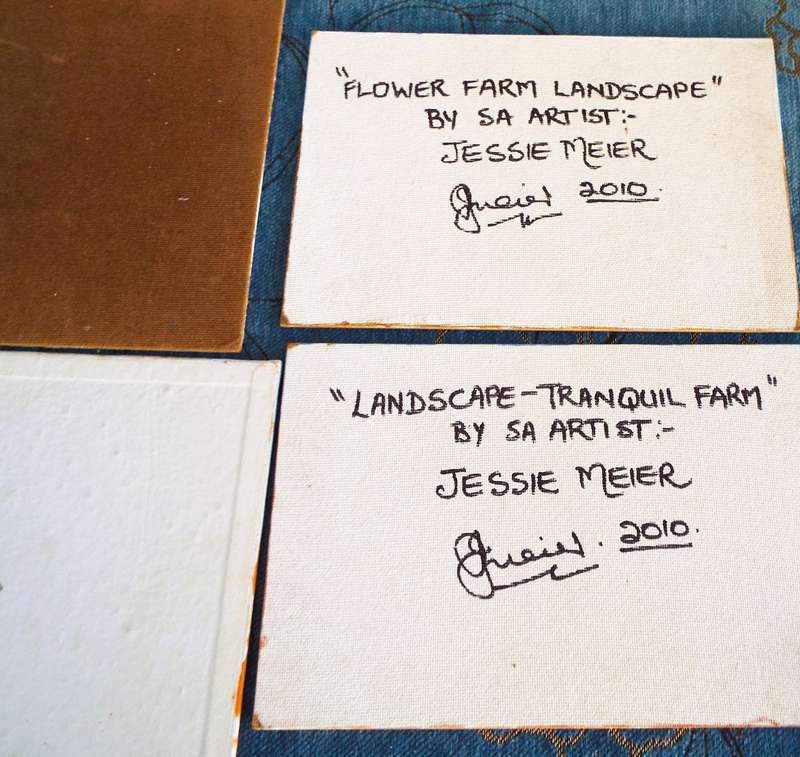 "FLOWER FARM LANDSCAPE"
BY SA ARTIST:-
JESSIE MEIER
JMeier 2010.
"LANDSCAPE-TRANQUIL FARM"
BY SA ARTIST:-
JESSIE MEIER
JMeier. 2010.